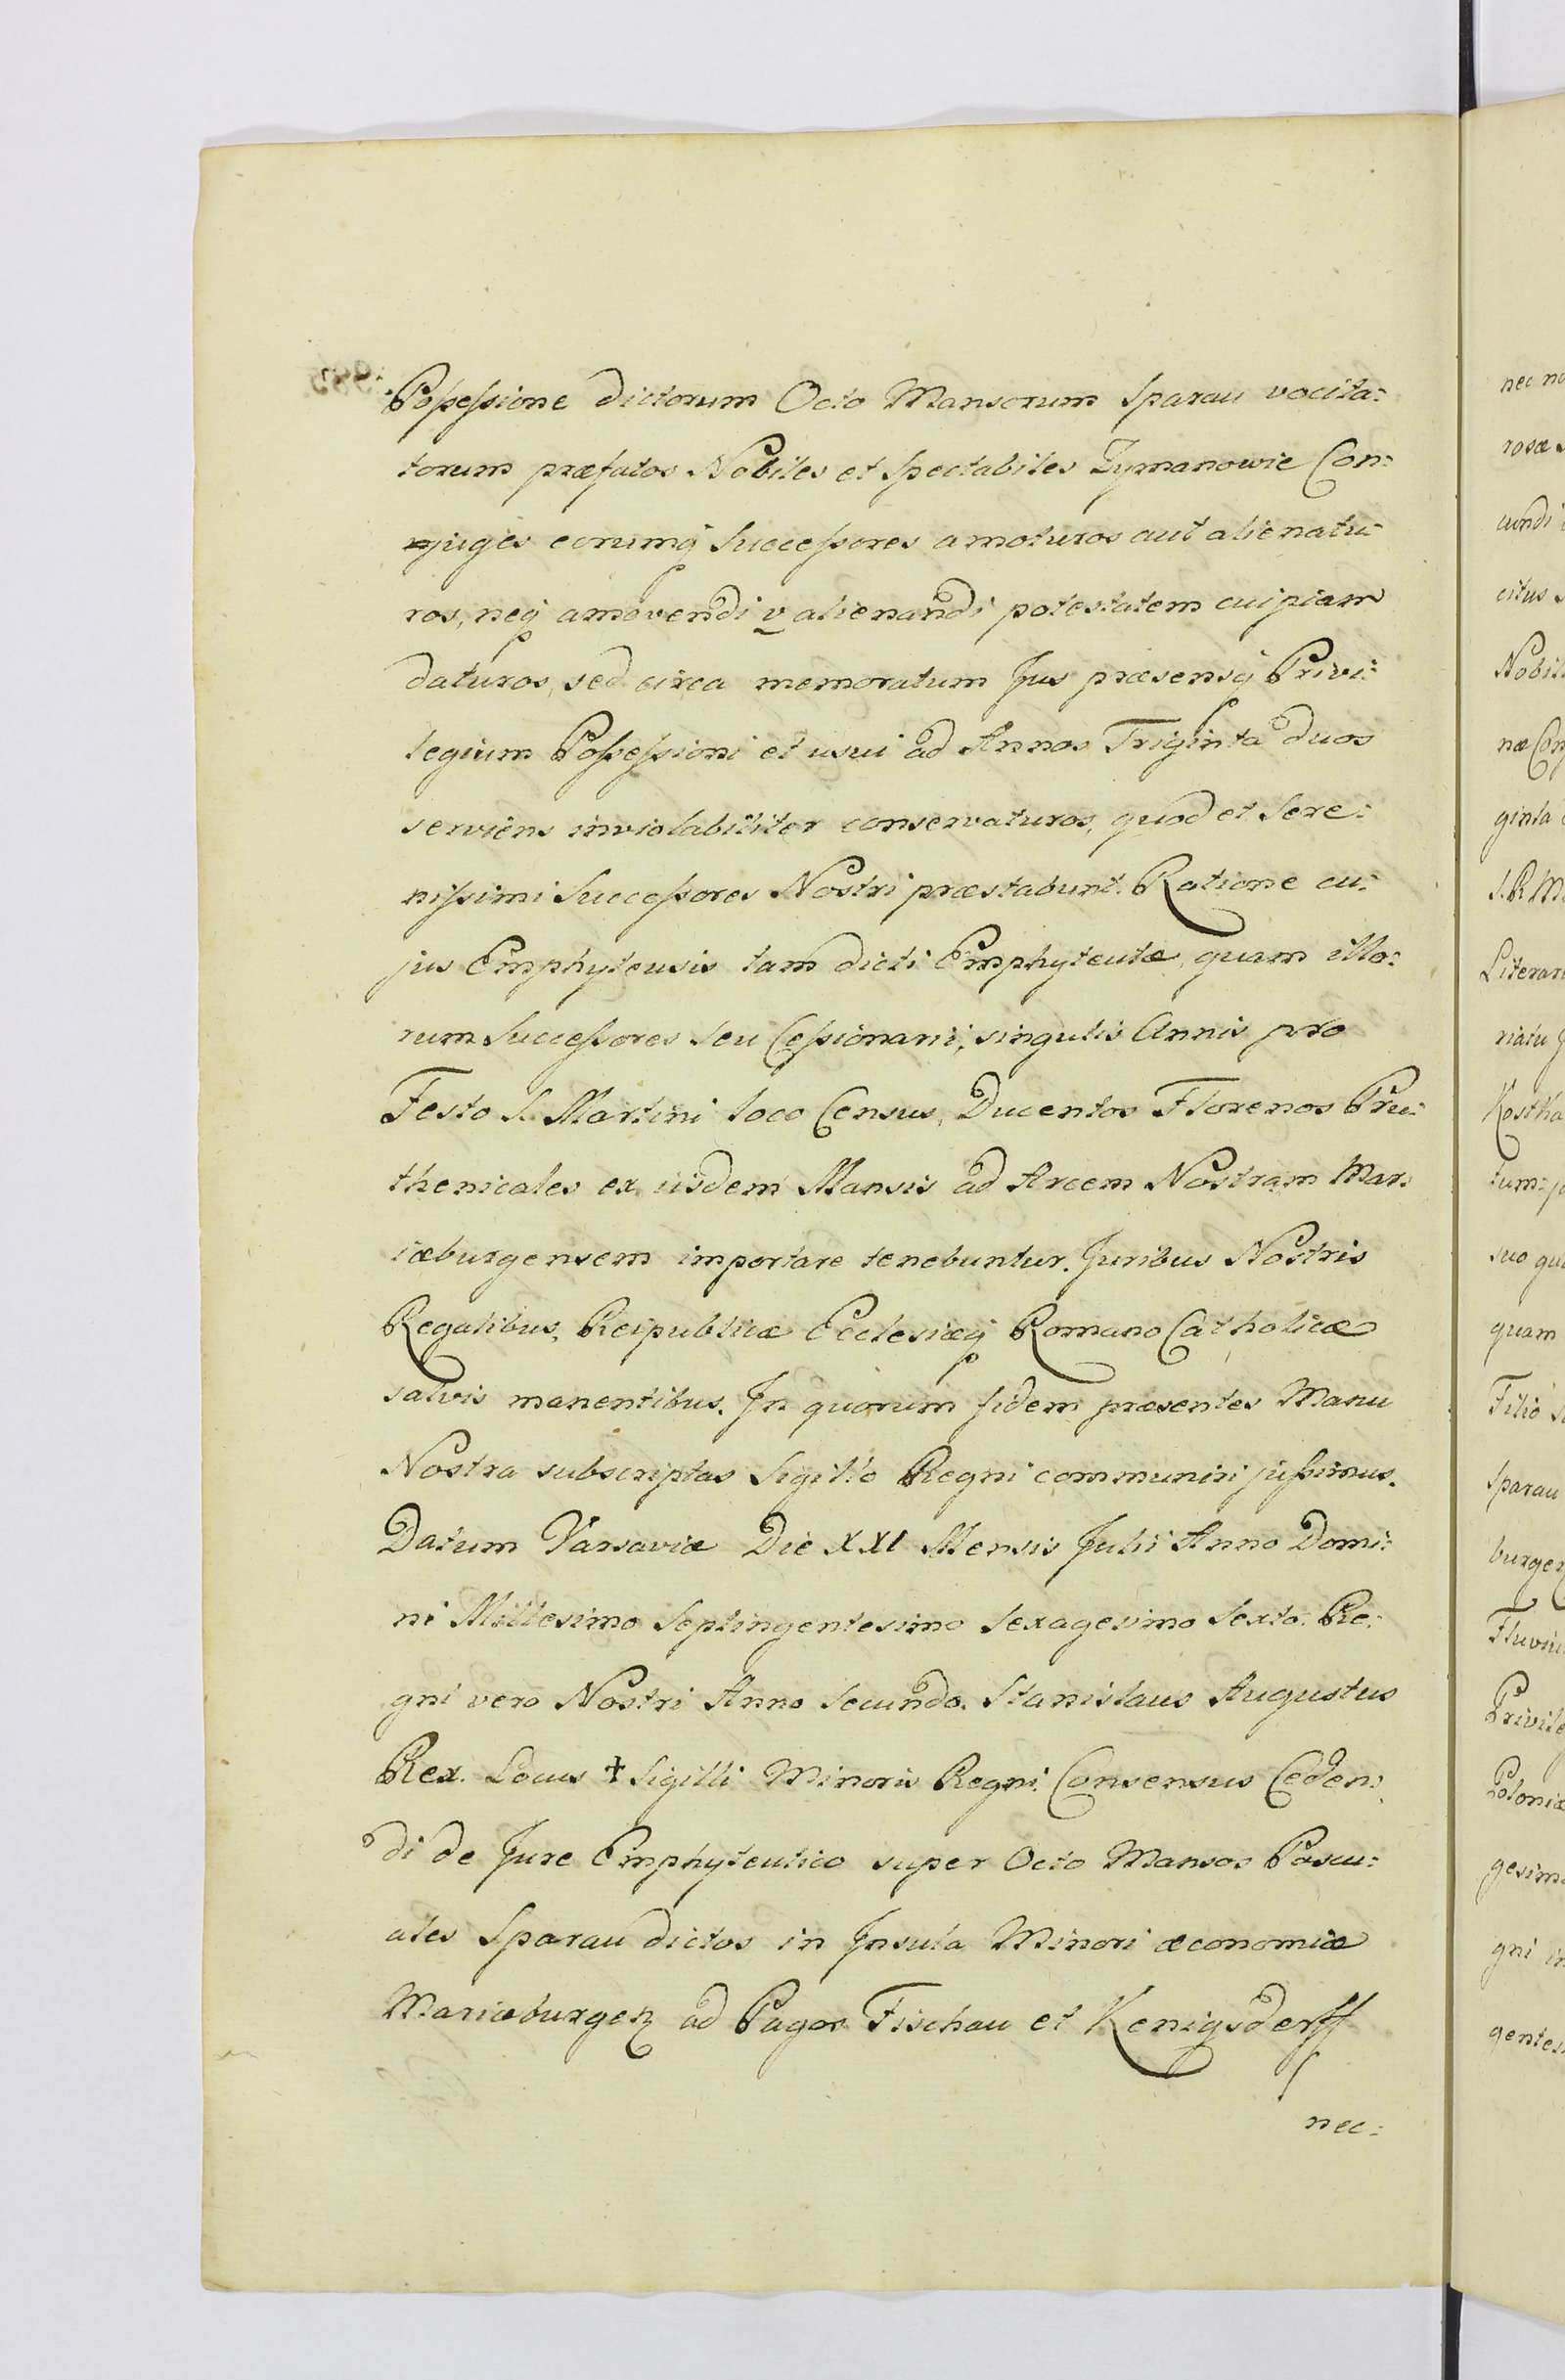 Poſseſsione dictorum Octo Mansorum Sparau vocita:
torum præfatos Nobiles et Spectabiles Zymanowie Con:
juges eorumq́ Succeſsores amoturos aut alienatu:
ros, neq́ amovendi v alienandi potestatem cuipiam
daturos, sed circa memoratum Jus præsensq́ Privi:
legium Poſseſsioni et usui ad Annos Triginta duos
serviens inviolabiliter conservaturos, quod et Sere:
niſsimi Succeſsores Nostri præstabunt. Ratione cu:
jus Emphyteusis tam dicti Emphyteutæ, quam illo:
rum Succeſsores seu Ceſsionarii, singulis Annis pro
Festo S. Martini loco Census, Ducentos Florenos Pru:
thenicales ex iisdem Mansis ad Arcem Nostram Mar:
iæburgensem importare tenebuntur. Juribus Nostris
Regalibus, Reipublicæ Ecclesiæq́ Romano Catholicæ
salvis manentibus. Jn quorum fidem præsentes Manu
Nostra subscriptas Sigillo Regni communiri juſsimus.
Datum Varsaviæ Die XXI Mensis Julii Anno Domi:
ni Millesimo Septingentesimo Sexagesimo Sexto. Re:
gni vero Nostri Anno Secundo. Stanislaus Augustus
Rex. Locus ✝ Sigilli Minoris Regni. Consensus Ceden:
di de Jure Emphyteutico super Octo Mansos Pascu:
ales Sparau dictos in Jnsula Minori œconomiæ
Mariæburgen̄ ad Pagos Fischau et Kenigsderff
nec:
nec no
rosæ
cundi
citus
Nobil
næ Con
ginta
S. R. M.
Literar
riatu
Kostka
tum
suo qu
quam
Filio
Sparau
burgen
Fluviu
Privile
Poloniæ
gesim
gni in
gentes